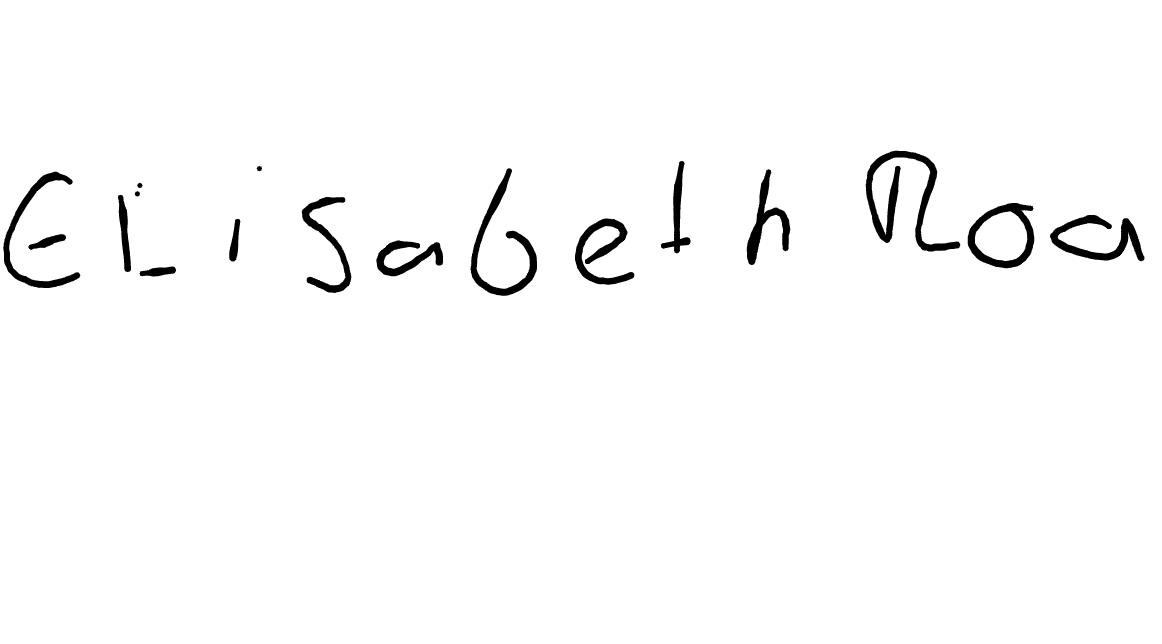 Elisabeth Roa